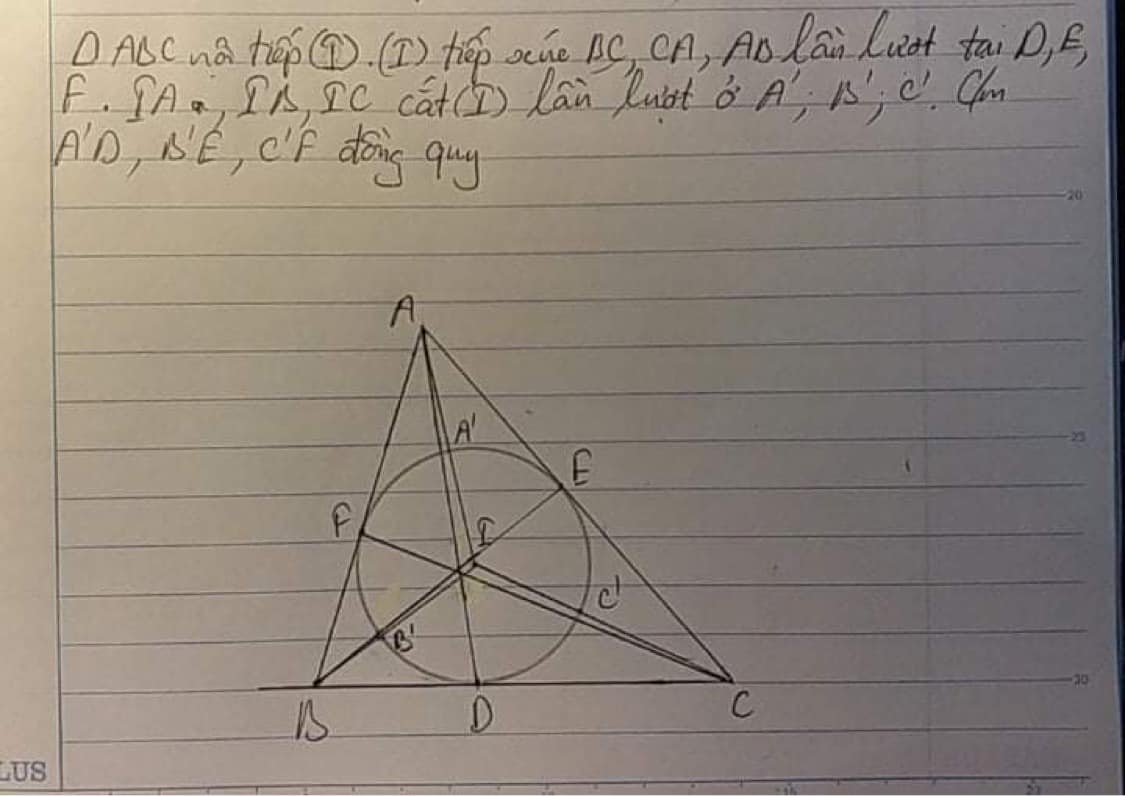 Δ ABC nội tiếp (I). (I) tiếp xúc BC, CA, AB lần lượt tại D, E,
F. IA, IB, IC cắt (I) lần lượt ở A'; B'; C'. C/m
A'D, B'E, C'F đồng quy
20
A
A'
25
E
F
I
C'
B'
30
B
D
C
LUS